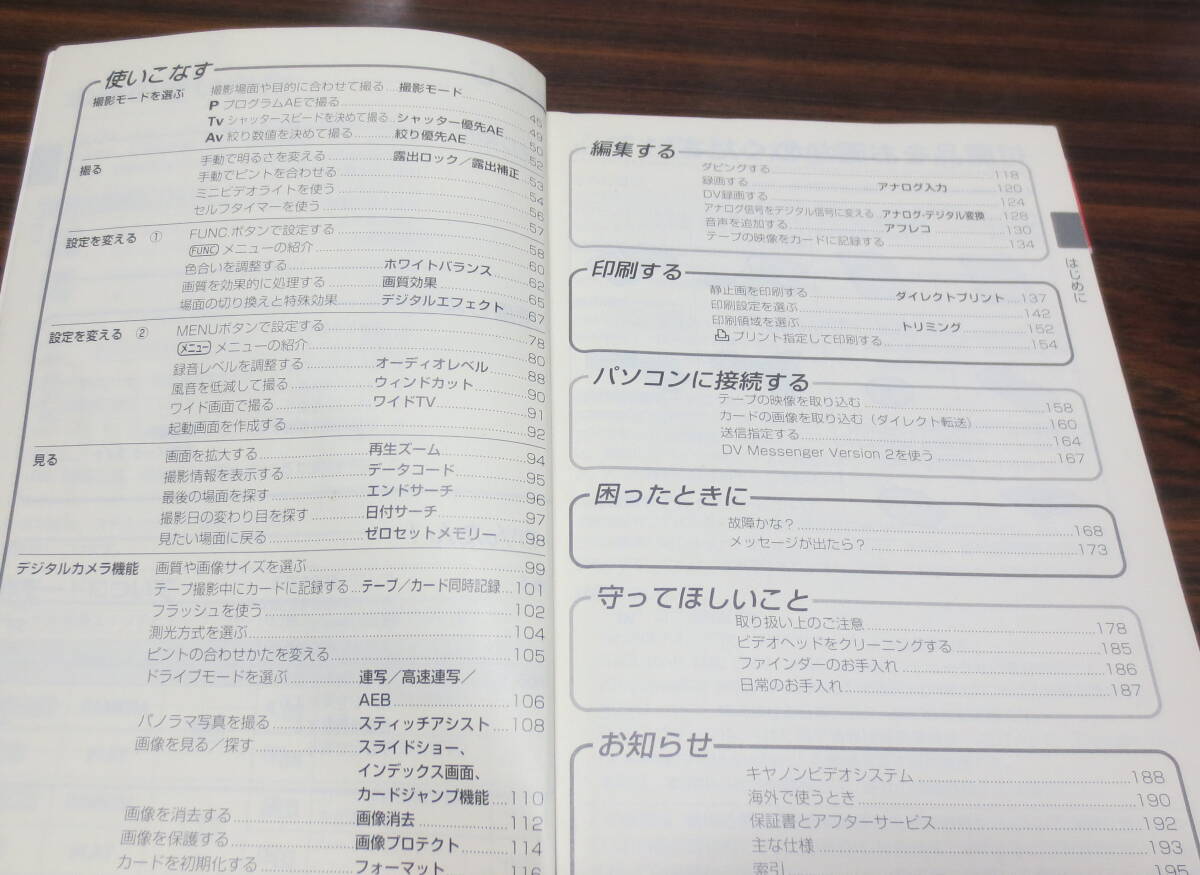 使いこなす
撮影モードを選ぶ 撮影場面や目的に合わせて撮る...撮影モード........45
P プログラムAEで撮る........49
Tv シャッタースピードを決めて撮る シャッター優先AE...50
Av 絞り数値を決めて撮る........絞り優先AE........52
撮る 手動で明るさを変える........露出ロック／露出補正...53
手動でピントを合わせる........54
ミニビデオライトを使う........56
セルフタイマーを使う........57
設定を変える ① FUNC.ボタンで設定する........58
FUNC. メニューの紹介........60
色合いを調整する........ホワイトバランス........62
画質を効果的に処理する........画質効果........65
場面の切り換えと特殊効果........デジタルエフェクト........67
設定を変える ② MENUボタンで設定する........78
メニュー メニューの紹介........80
録音レベルを調整する........オーディオレベル........88
風音を低減して撮る........ウィンドカット........90
ワイド画面で撮る........ワイドTV........91
起動画面を作成する........92
見る 画面を拡大する........再生ズーム........94
撮影情報を表示する........データコード........95
最後の場面を探す........エンドサーチ........96
撮影日の変わり目を探す........日付サーチ........97
見たい場面に戻る........ゼロセットメモリー........98
デジタルカメラ機能 画質や画像サイズを選ぶ........99
テープ撮影中にカードに記録する...テープ／カード同時記録...101
フラッシュを使う........102
測光方式を選ぶ........104
ピントの合わせかたを変える........105
ドライブモードを選ぶ........連写／高速連写／
AEB........106
パノラマ写真を撮る........スティッチアシスト....108
画像を見る／探す........スライドショー、
インデックス画面、
カードジャンプ機能....110
画像を消去する........画像消去........112
画像を保護する........画像プロテクト........114
カードを初期化する........フォーマット........116
編集する
ダビングする........118
録画する........アナログ入力........120
DV録画する........124
アナログ信号をデジタル信号に変える アナログ-デジタル変換....128
音声を追加する........アフレコ........130
テープの映像をカードに記録する........134
印刷する
静止画を印刷する........ダイレクトプリント....137
印刷設定を選ぶ........142
印刷領域を選ぶ........トリミング........152
プリント指定して印刷する........154
パソコンに接続する
テープの映像を取り込む........158
カードの画像を取り込む（ダイレクト転送）........160
送信指定する........164
DV Messenger Version 2を使う........167
困ったときに
故障かな？........168
メッセージが出たら？........173
守ってほしいこと
取り扱い上のご注意........178
ビデオヘッドをクリーニングする........185
ファインダーのお手入れ........186
日常のお手入れ........187
お知らせ
キヤノンビデオシステム........188
海外で使うとき........190
保証書とアフターサービス........192
主な仕様........193
索引........195
はじめに